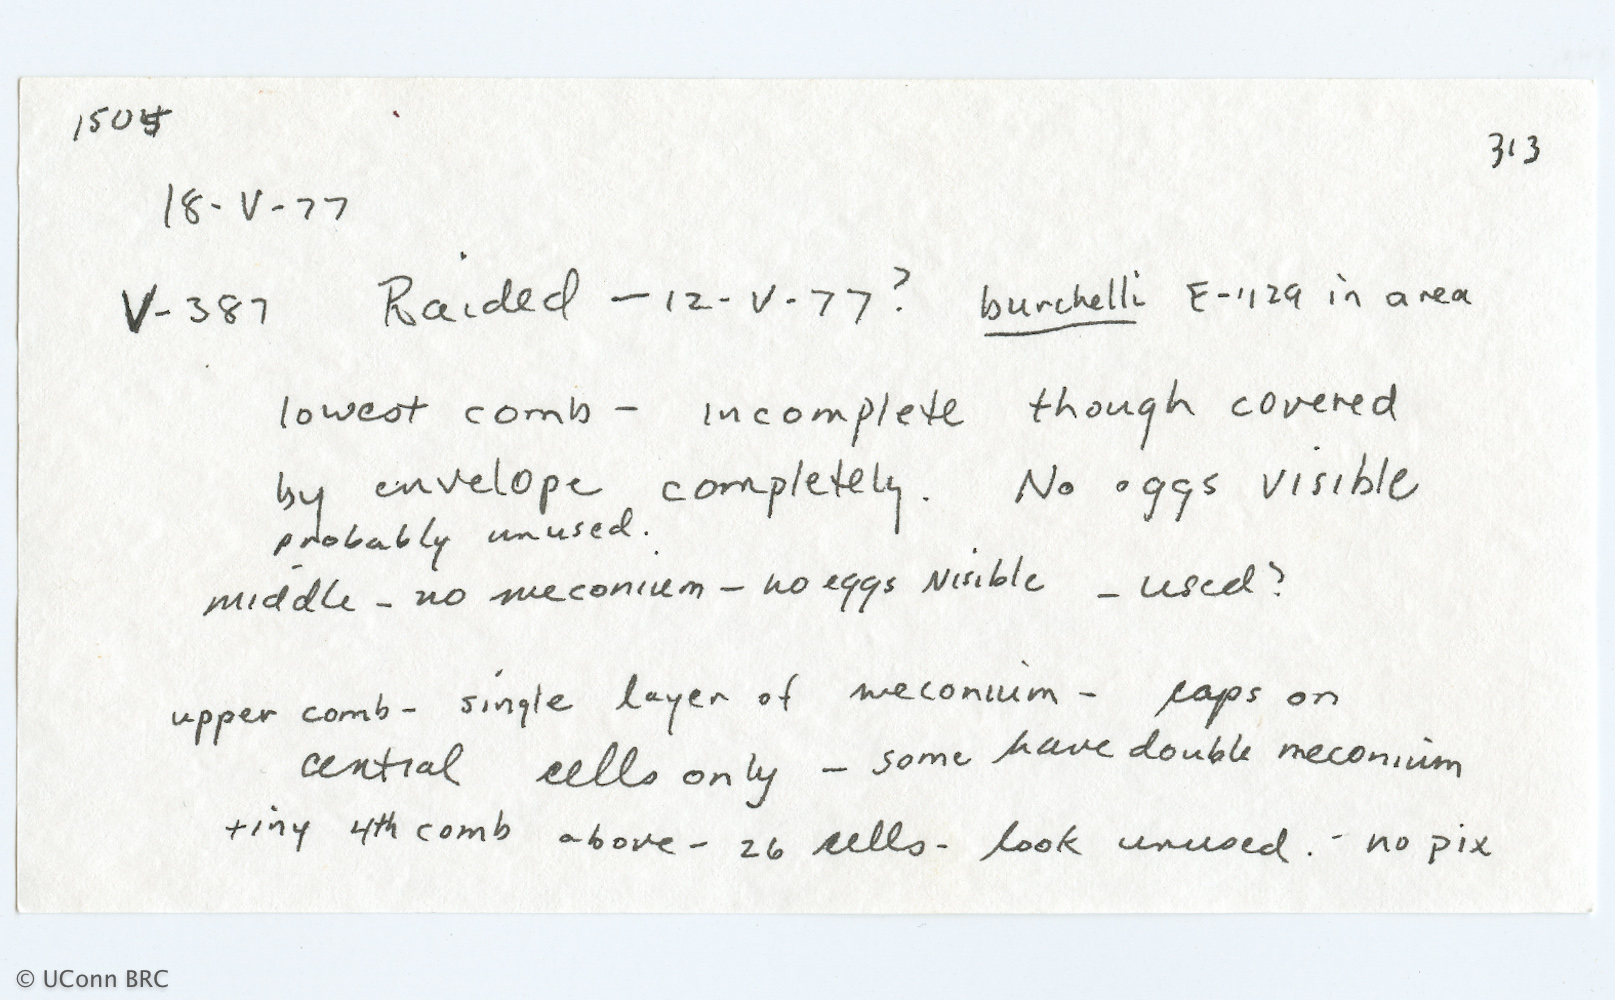 313
18-V-77
V-387 Raided - 12-V-77? burchelli E-1129 in area
lowest comb - incomplete though covered
by envelope completely. No eggs visible
probably unused.
middle - no meconium - no eggs visible - used?
upper comb - single layer of meconium - caps on
central cells only - some have double meconium
tiny 4th comb above - 26 cells - look unused. - no pix
© UConn BRC